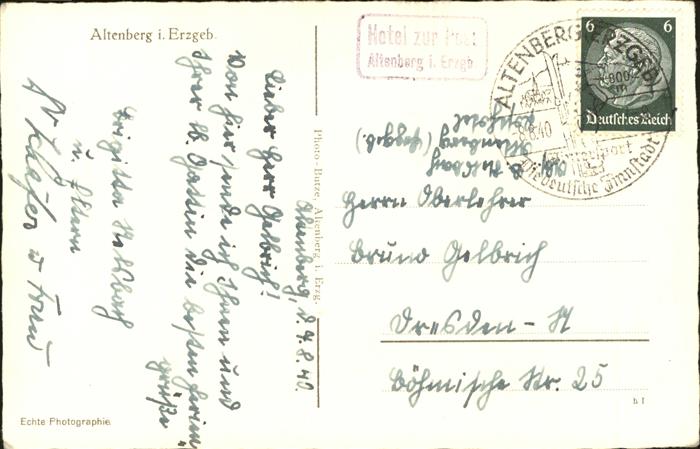 Altenberg i. Erzgeb.
Hotel zur Post
Altenberg i. Erzgb
ALTENBERG (ERZGEB)
800
.8.40
Wintersport
Die deutsche Zinnstadt
6 6
Deutsches Reich
Altenberg, d. 7.8.40.
Lieber Herr Gelbrich!
Von hier sende ich Ihnen und
Ihrer lb. Gattin die besten Ferien-
grüße
Brigitte
u. Eltern
Schäfer u Frau
Photo-Butze, Altenberg i. Erzg.
Altenberg (Erzgeb.)
Herrn Oberlehrer
Bruno Gelbrich
Dresden-A
Böhmische Str. 25
h I
Echte Photographie